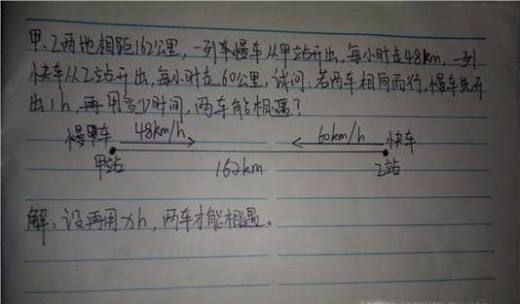 甲、乙两地相距162公里,一列车慢车从甲站开出,每小时走48km,一列
快车从乙站开出,每小时走60公里,试问,若两车相向而行,慢车先开
出1h,再用多少时间,两车能相遇?
慢车 48km/h 60km/h 快车
甲站 162km 乙站
解:设再用xh,两车才能相遇。